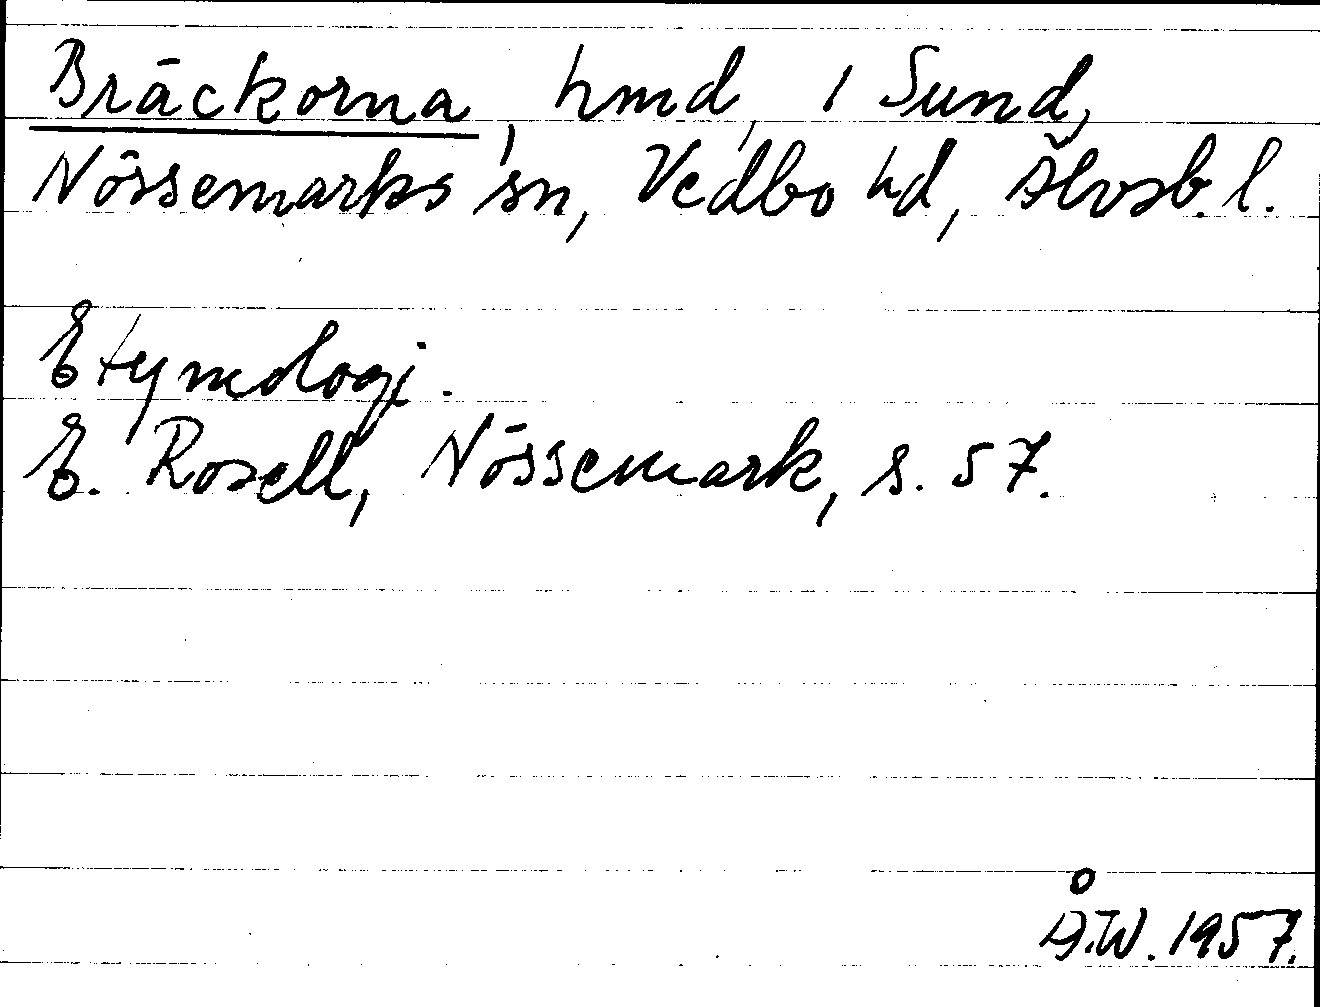 Bräckorna, hmd, i Sund,
Nössemarks sn, Vedbo hd, Älvsb. l.
Etymologi.
E. Rosell, Nössemark, s. 57.
Å.W. 1957.